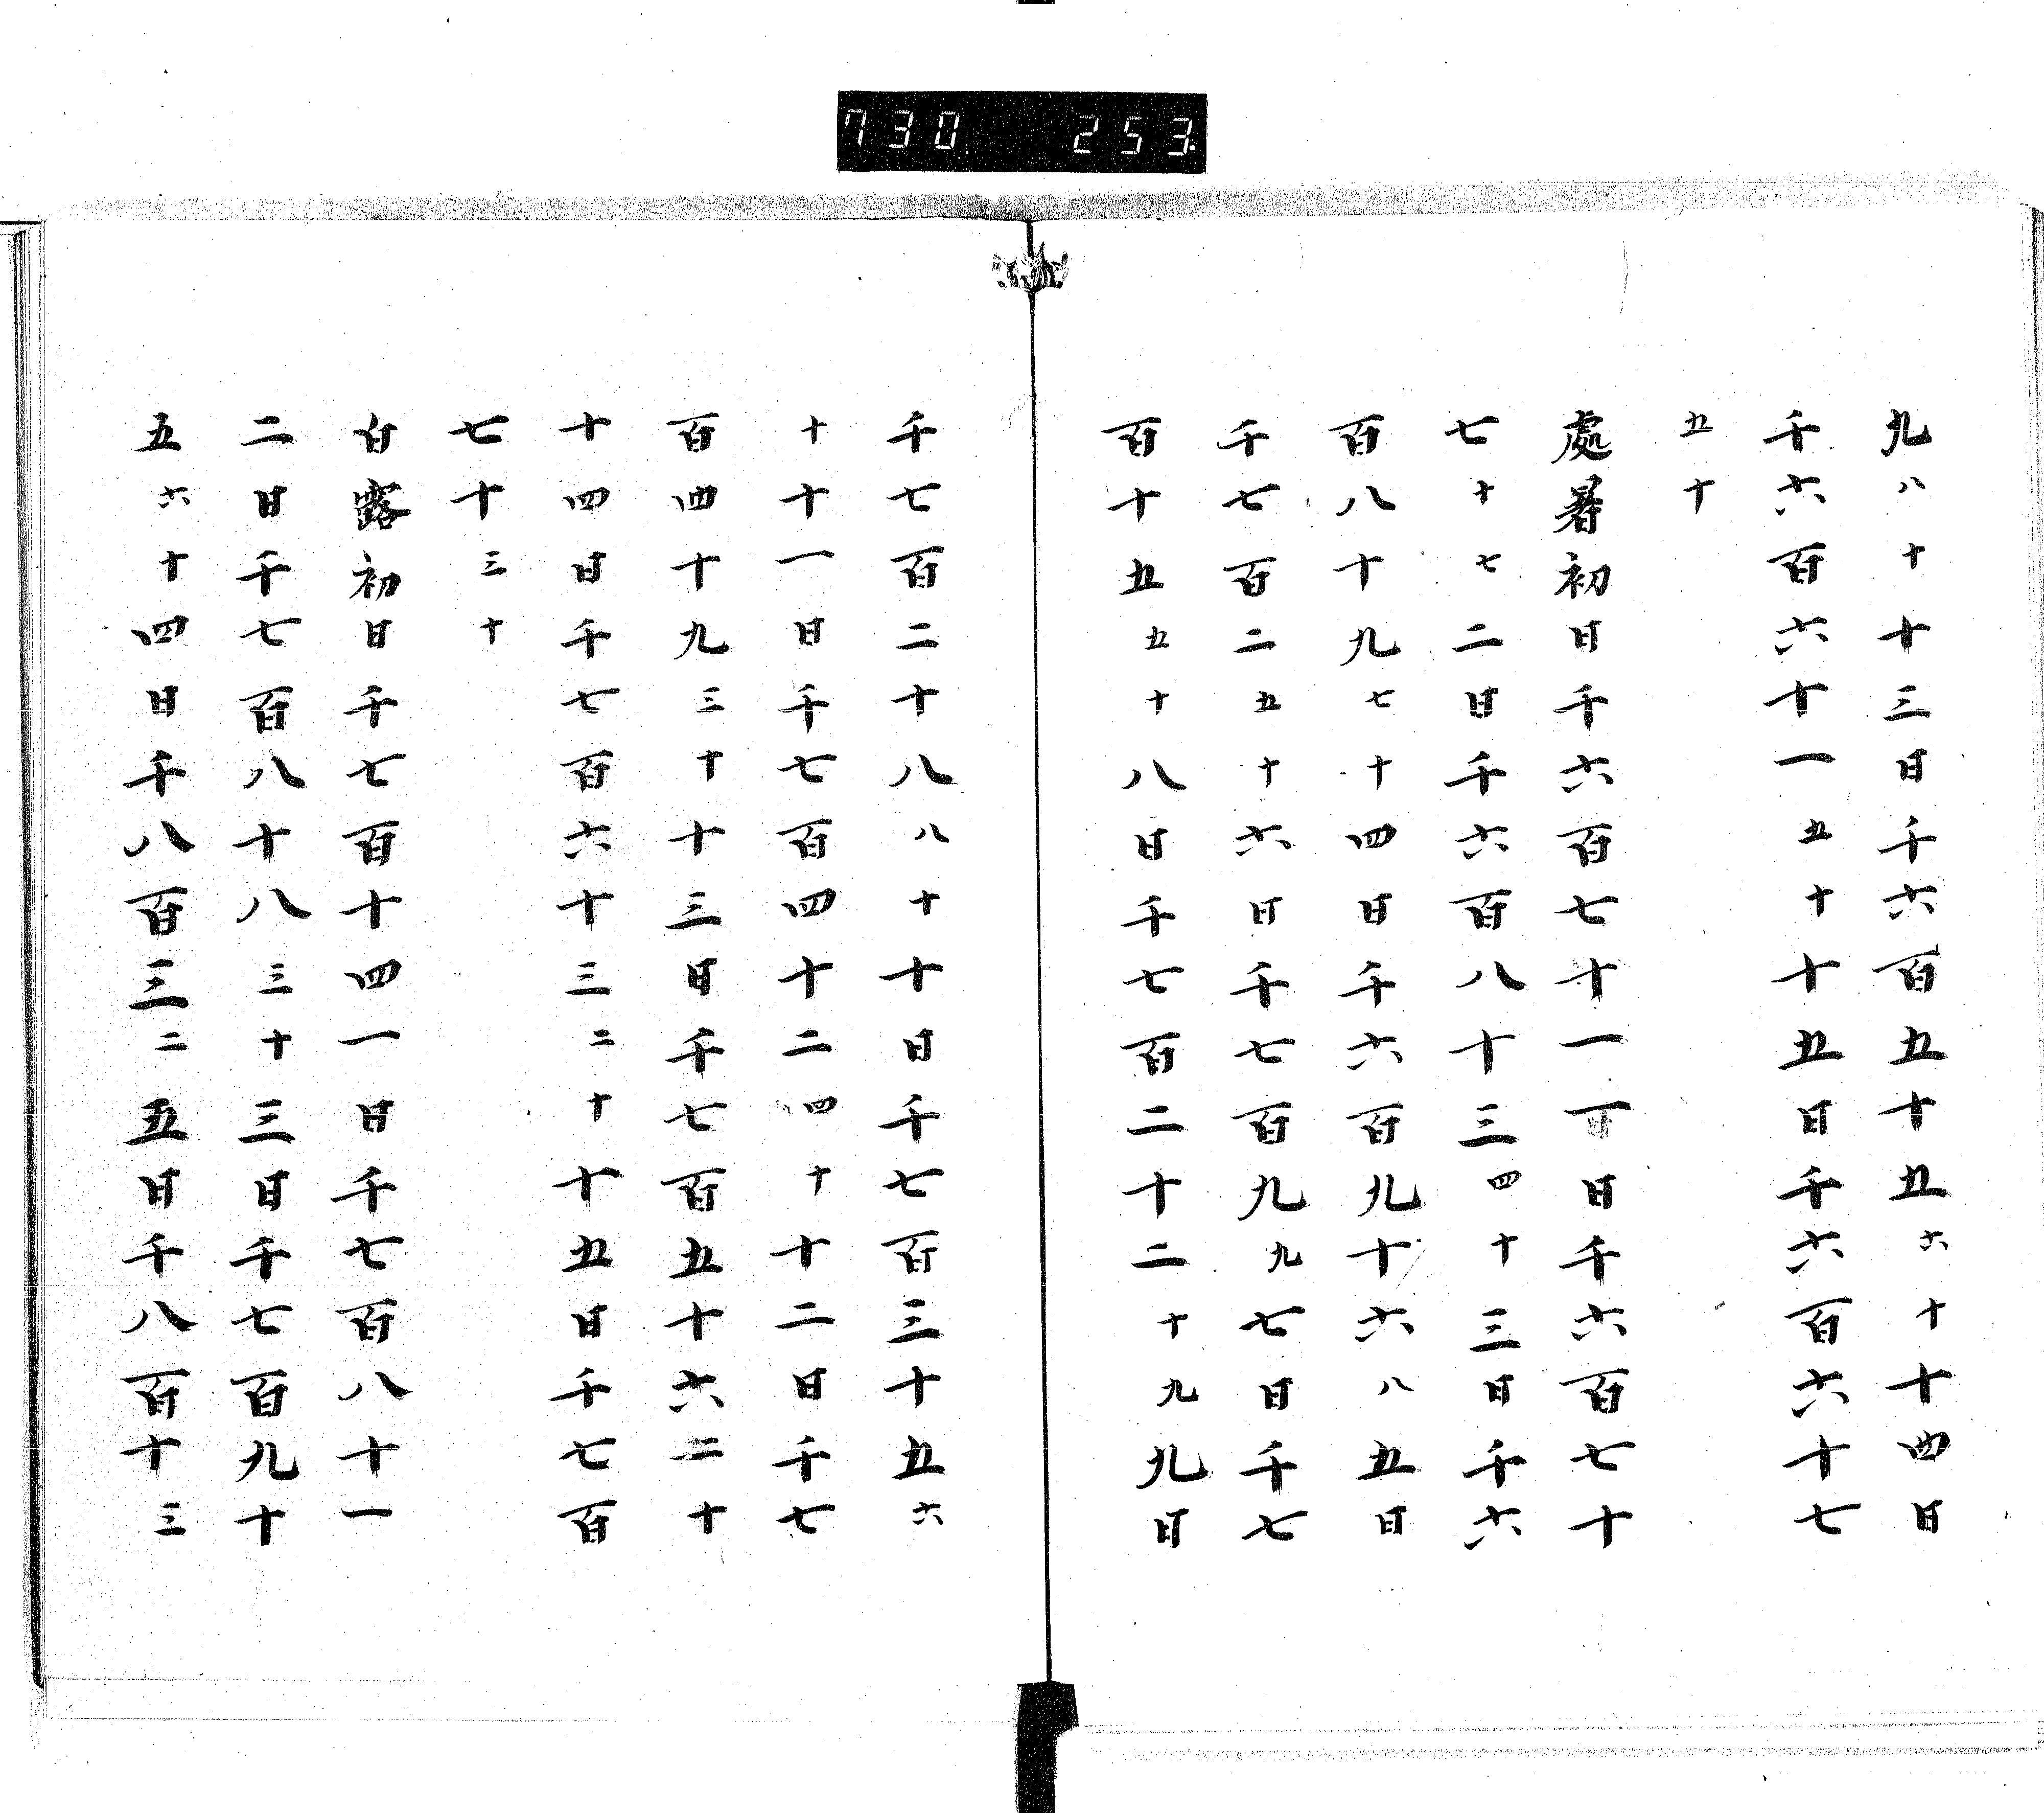 730 253.
九八十十三日千六百五十五六十十四日
千六百六十一五十十五日千六百六十七
五十
處暑初日千六百七十一丁日千六百七十
七十七二日千六百八十三四十三日千六
百八十九七十四日千六百九十六八五日
千七百二五十六日千七百九九七日千七
百十五五十八日千七百二十二十九九日
千七百二十八八十十日千七百三十五六
十十一日千七百四十二四十十二日千七
百四十九三十十三日千七百五十六二十
十四日千七百六十三二十十五日千七百
七十三十
白露初日千七百十四一日千七百八十一
二日千七百八十八三十三日千七百九十
五六十四日千八百三二五日千八百十三